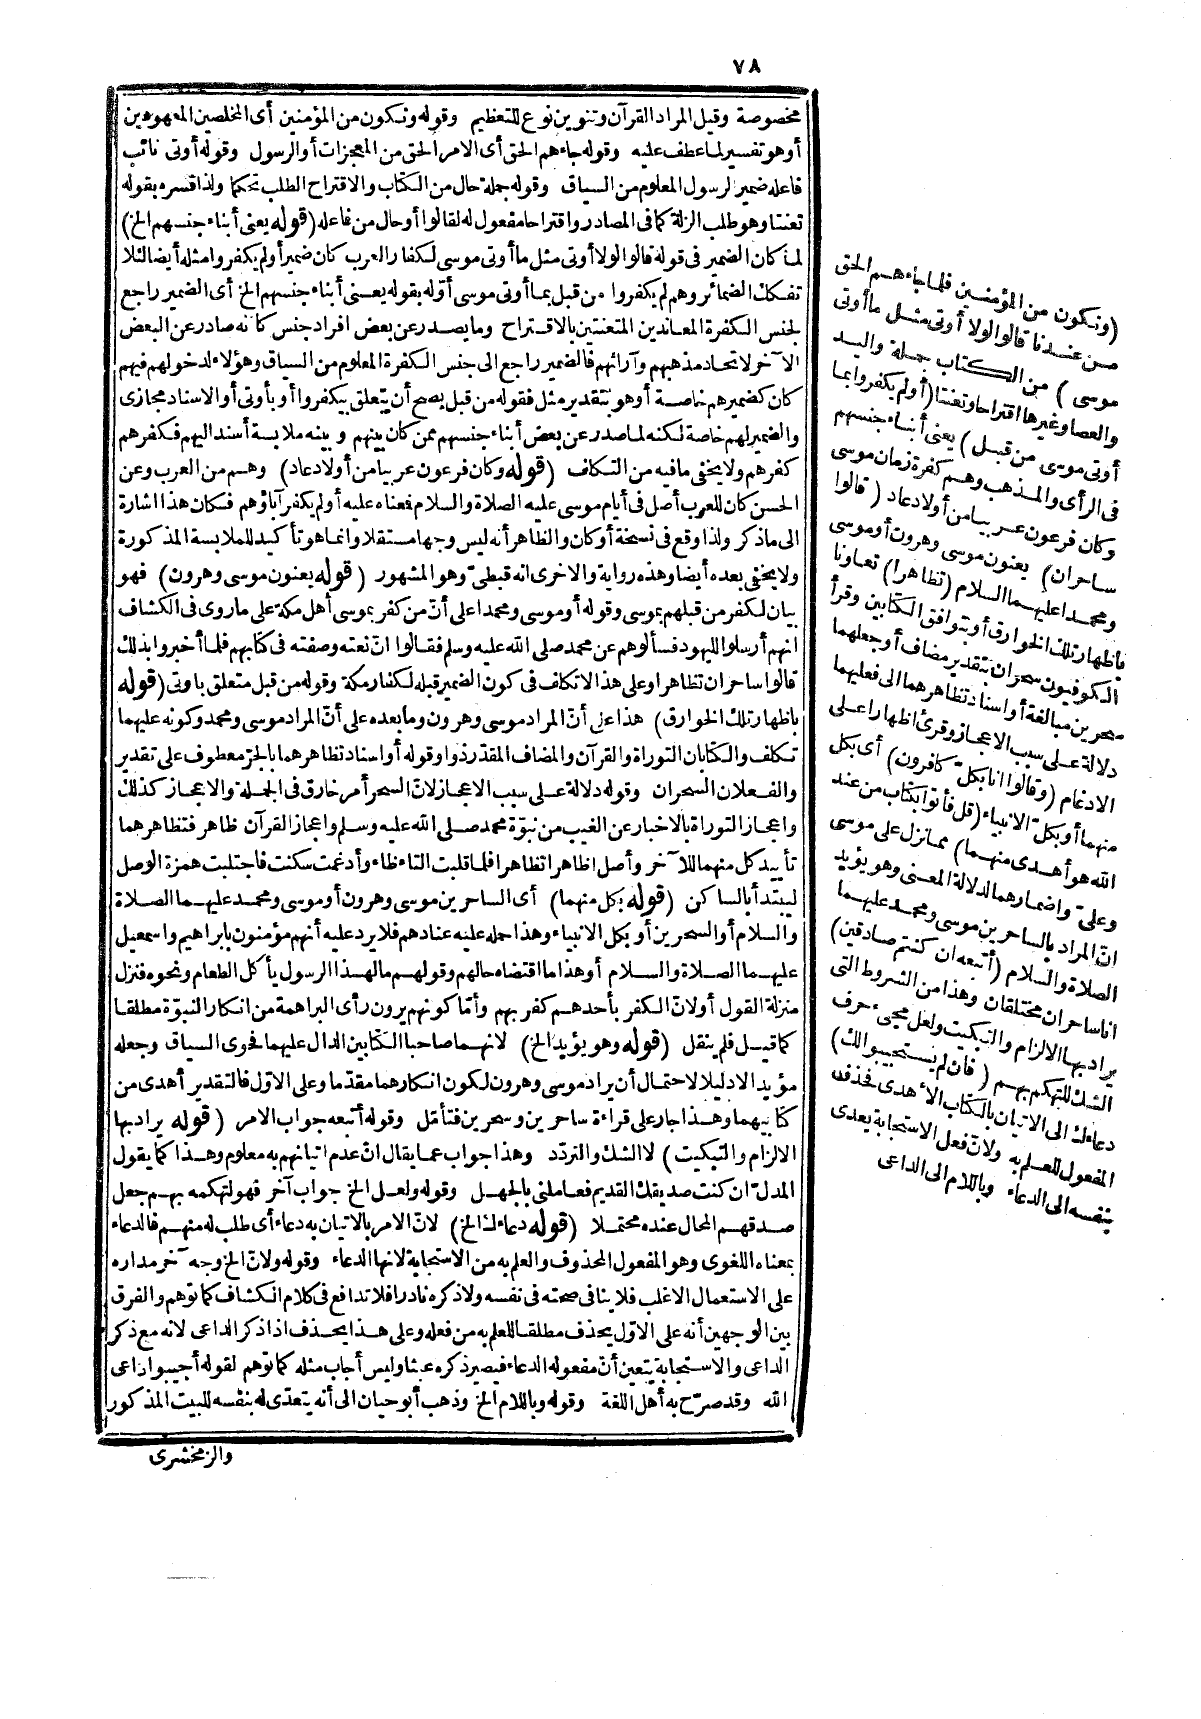 ٧٨
مخصوصة وقيل المراد القرآن وتنوين نوع للتعظيم وقوله ونكون من المؤمنين أى المخلصين المعهودين
أو هو تفسير لما عطف عليه وقوله جاءهم الحق أى الامر الحق من المعجزات أو الرسول وقوله أوتى نائب
فاعله ضمير لرسول المعلوم من السياق وقوله جملة حال من الكتاب والاقتراح الطلب تحكما ولذا فسره بقوله
تعنتا وهو طلب الزلة كما فى المصادر واقتراحا مفعول له لقالوا أو حال من فاعله (قوله يعنى أبناء جنسهم الخ)
لما كان الضمير فى قوله قالوا لولا أوتى مثل ما أوتى موسى لكفار العرب كان ضمير أولم يكفروا مثله أيضا لئلا
تفكك الضمائر وهم لم يكفروا من قبل بما أوتى موسى أوله بقوله يعنى أبناء جنسهم الخ أى الضمير راجع
لجنس الكفرة المعاندين المتعنتين بالاقتراح وما يصدر عن بعض افراد جنس كانه صادر عن البعض
الآخر لاتحاد مذهبهم وآرائهم فالضمير راجع الى جنس الكفرة المعلوم من السياق وهؤلاء لدخولهم فيهم
كان كضميرهم خاصة أو هو بتقدير مثل فقوله من قبل يصح أن يتعلق بيكفروا أو بأوتى أو الاسناد مجازى
والضمير لهم خاصة لكنه لما صدر عن بعض أبناء جنسهم ممن كان بينهم وبينه ملابسة أسند اليهم فكفرهم
كفرهم ولا يخفى ما فيه من التكلف (قوله وكان فرعون عربيا من أولاد عاد) وهم من العرب وعن
الحسن كان للعرب أصل فى أيام موسى عليه الصلاة والسلام فمعناه عليه أولم يكفر آباؤهم فكان هذا اشارة
الى ما ذكر ولذا وقع فى نسخة أو كان والظاهر أنه ليس وجها مستقلا وانما هو تأكيد للملابسة المذكورة
ولا يخفى بعده أيضا وهذه رواية والاخرى انه قبطىّ وهو المشهور (قوله يعنون موسى وهرون) فهو
بيان لكفر من قبلهم بموسى وقوله أو موسى ومحمدا على أنّ من كفر بموسى أهل مكة على ما روى فى الكشاف
انهم أرسلوا لليهود فسألوهم عن محمد صلى الله عليه وسلم فقالوا انّ نعته وصفته فى كتابهم فلما أخبروا بذلك
قالوا ساحران تظاهرا وعلى هذا لا تكلف فى كون الضمير قبله لكفار مكة وقوله من قبل متعلق باوتى (قوله
باظهار تلك الخوارق) هذا على أنّ المراد موسى وهرون وما بعده على أنّ المراد موسى ومحمد وكونه عليهما
تكلف والكتابان التوراة والقرآن والمضاف المقدر ذوا وقوله أو اسناد تظاهرهما بالجرّ معطوف على تقدير
والفعلان السحران وقوله دلالة على سبب الاعجاز لانّ السحر أمر خارق فى الجملة والاعجاز كذلك
واعجاز التوراة بالاخبار عن الغيب من نبوّة محمد صلى الله عليه وسلم واعجاز القرآن ظاهر فتظاهرهما
تأييد كل منهما للآخر وأصل اظاهرا تظاهرا فلما قلبت التاء ظاء وأدغمت سكنت فاجتلبت همزة الوصل
ليبتدأ بالساكن (قوله بكل منهما) أى الساحرين موسى وهرون أو موسى ومحمد عليهما الصلاة
والسلام أو السحرين أو بكل الانبياء وهذا حمله عليه عنادهم فلا يرد عليه أنهم مؤمنون بابراهيم واسمعيل
عليهما الصلاة والسلام أو هذا ما اقتضاه حالهم وقولهم مال هذا الرسول يأكل الطعام ونحوه فنزل
منزلة القول أو لانّ الكفر بأحدهم كفر بهم وأمّا كونهم يرون رأى البراهمة من انكار النبوّة مطلقا
كما قيل فلم ينقل (قوله وهو يؤيد الخ) لانهما صاحبا الكتابين الدال عليهما فحوى السياق وجعله
مؤيدا لا دليلا لاحتمال أن يراد موسى وهرون لكون انكارهما مقدّما وعلى الاوّل فالتقدير أهدى من
كتابيهما وهذا جار على قراءة ساحرين وسحرين فتأمّل وقوله أتبعه جواب الامر (قوله يراد بها
الالزام والتبكيت) لا الشك والتردّد وهذا جواب عما يقال انّ عدم اتيانهم به معلوم وهذا كما يقول
المدلّ ان كنت صديقك القديم فعاملنى بالجميل وقوله ولعل الخ جواب آخر فهو لتهكمه بهم جعل
صدقهم المحال عنده محتملا (قوله دعاءك الخ) لانّ الامر بالاتيان به دعاء أى طلب له منهم فالدعاء
بمعناه اللغوى وهو المفعول المحذوف والعلم به من الاستجابة لانها الدعاء وقوله ولانّ الخ وجه آخر مداره
على الاستعمال الاغلب فلا ينافى صحته فى نفسه ولا ذكره نادرا فلا تدافع فى كلام الكشاف كما توهم والفرق
بين الوجهين أنه على الاوّل يحذف مطلقا للعلم به من فعله وعلى هذا يحذف اذا ذكر الداعى لانه مع ذكر
الداعى والاستجابة يتعين أنّ مفعوله الدعاء فيصير ذكره عبثا وليس أجاب مثله كما توهم لقوله أجيبوا داعى
الله وقد صرّح به أهل اللغة وقوله وباللام الخ وذهب أبو حيان الى أنه يتعدّى له بنفسه للبيت المذكور
والزمخشرى
(ونكون من المؤمنين فلما جاءهم الحق
من عندنا قالوا لولا أوتى مثل ما أوتى
موسى) من الكتاب جملة واليد
والعصا وغيرها اقتراحا وتعنتا (أولم يكفروا بما
أوتى موسى من قبل) يعنى أبناء جنسهم
فى الرأى والمذهب وهم كفرة زمان موسى
وكان فرعون عربيا من أولاد عاد (قالوا
ساحران) يعنون موسى وهرون أو موسى
ومحمدا عليهما السلام (تظاهرا) تعاونا
باظهار تلك الخوارق أو بتوافق الكتابين وقرأ
الكوفيون سحران بتقدير مضاف أو جعلهما
سحرين مبالغة أو اسناد تظاهرهما الى فعليهما
دلالة على سبب الاعجاز وقرئ اظاهرا على
الادغام (وقالوا انا بكلّ كافرون) أى بكل
منهما أو بكلّ الانبياء (قل فأتوا بكتاب من عند
الله هو أهدى منهما) مما نزل على موسى
وعلىّ واضمارهما لدلالة المعنى وهو يؤيد
انّ المراد بالساحرين موسى ومحمد عليهما
الصلاة والسلام (أتبعه ان كنتم صادقين)
انا ساحران مختلقان وهذا من الشروط التى
يراد بها الالزام والتبكيت ولعل مجىء حرف
الشك للتهكم بهم (فان لم يستجيبوا لك)
دعاءك الى الاتيان بالكتاب الأهدى فحذف
المفعول للعلم به ولانّ فعل الاستجابة يعدى
بنفسه الى الدعاء وباللام الى الداعى